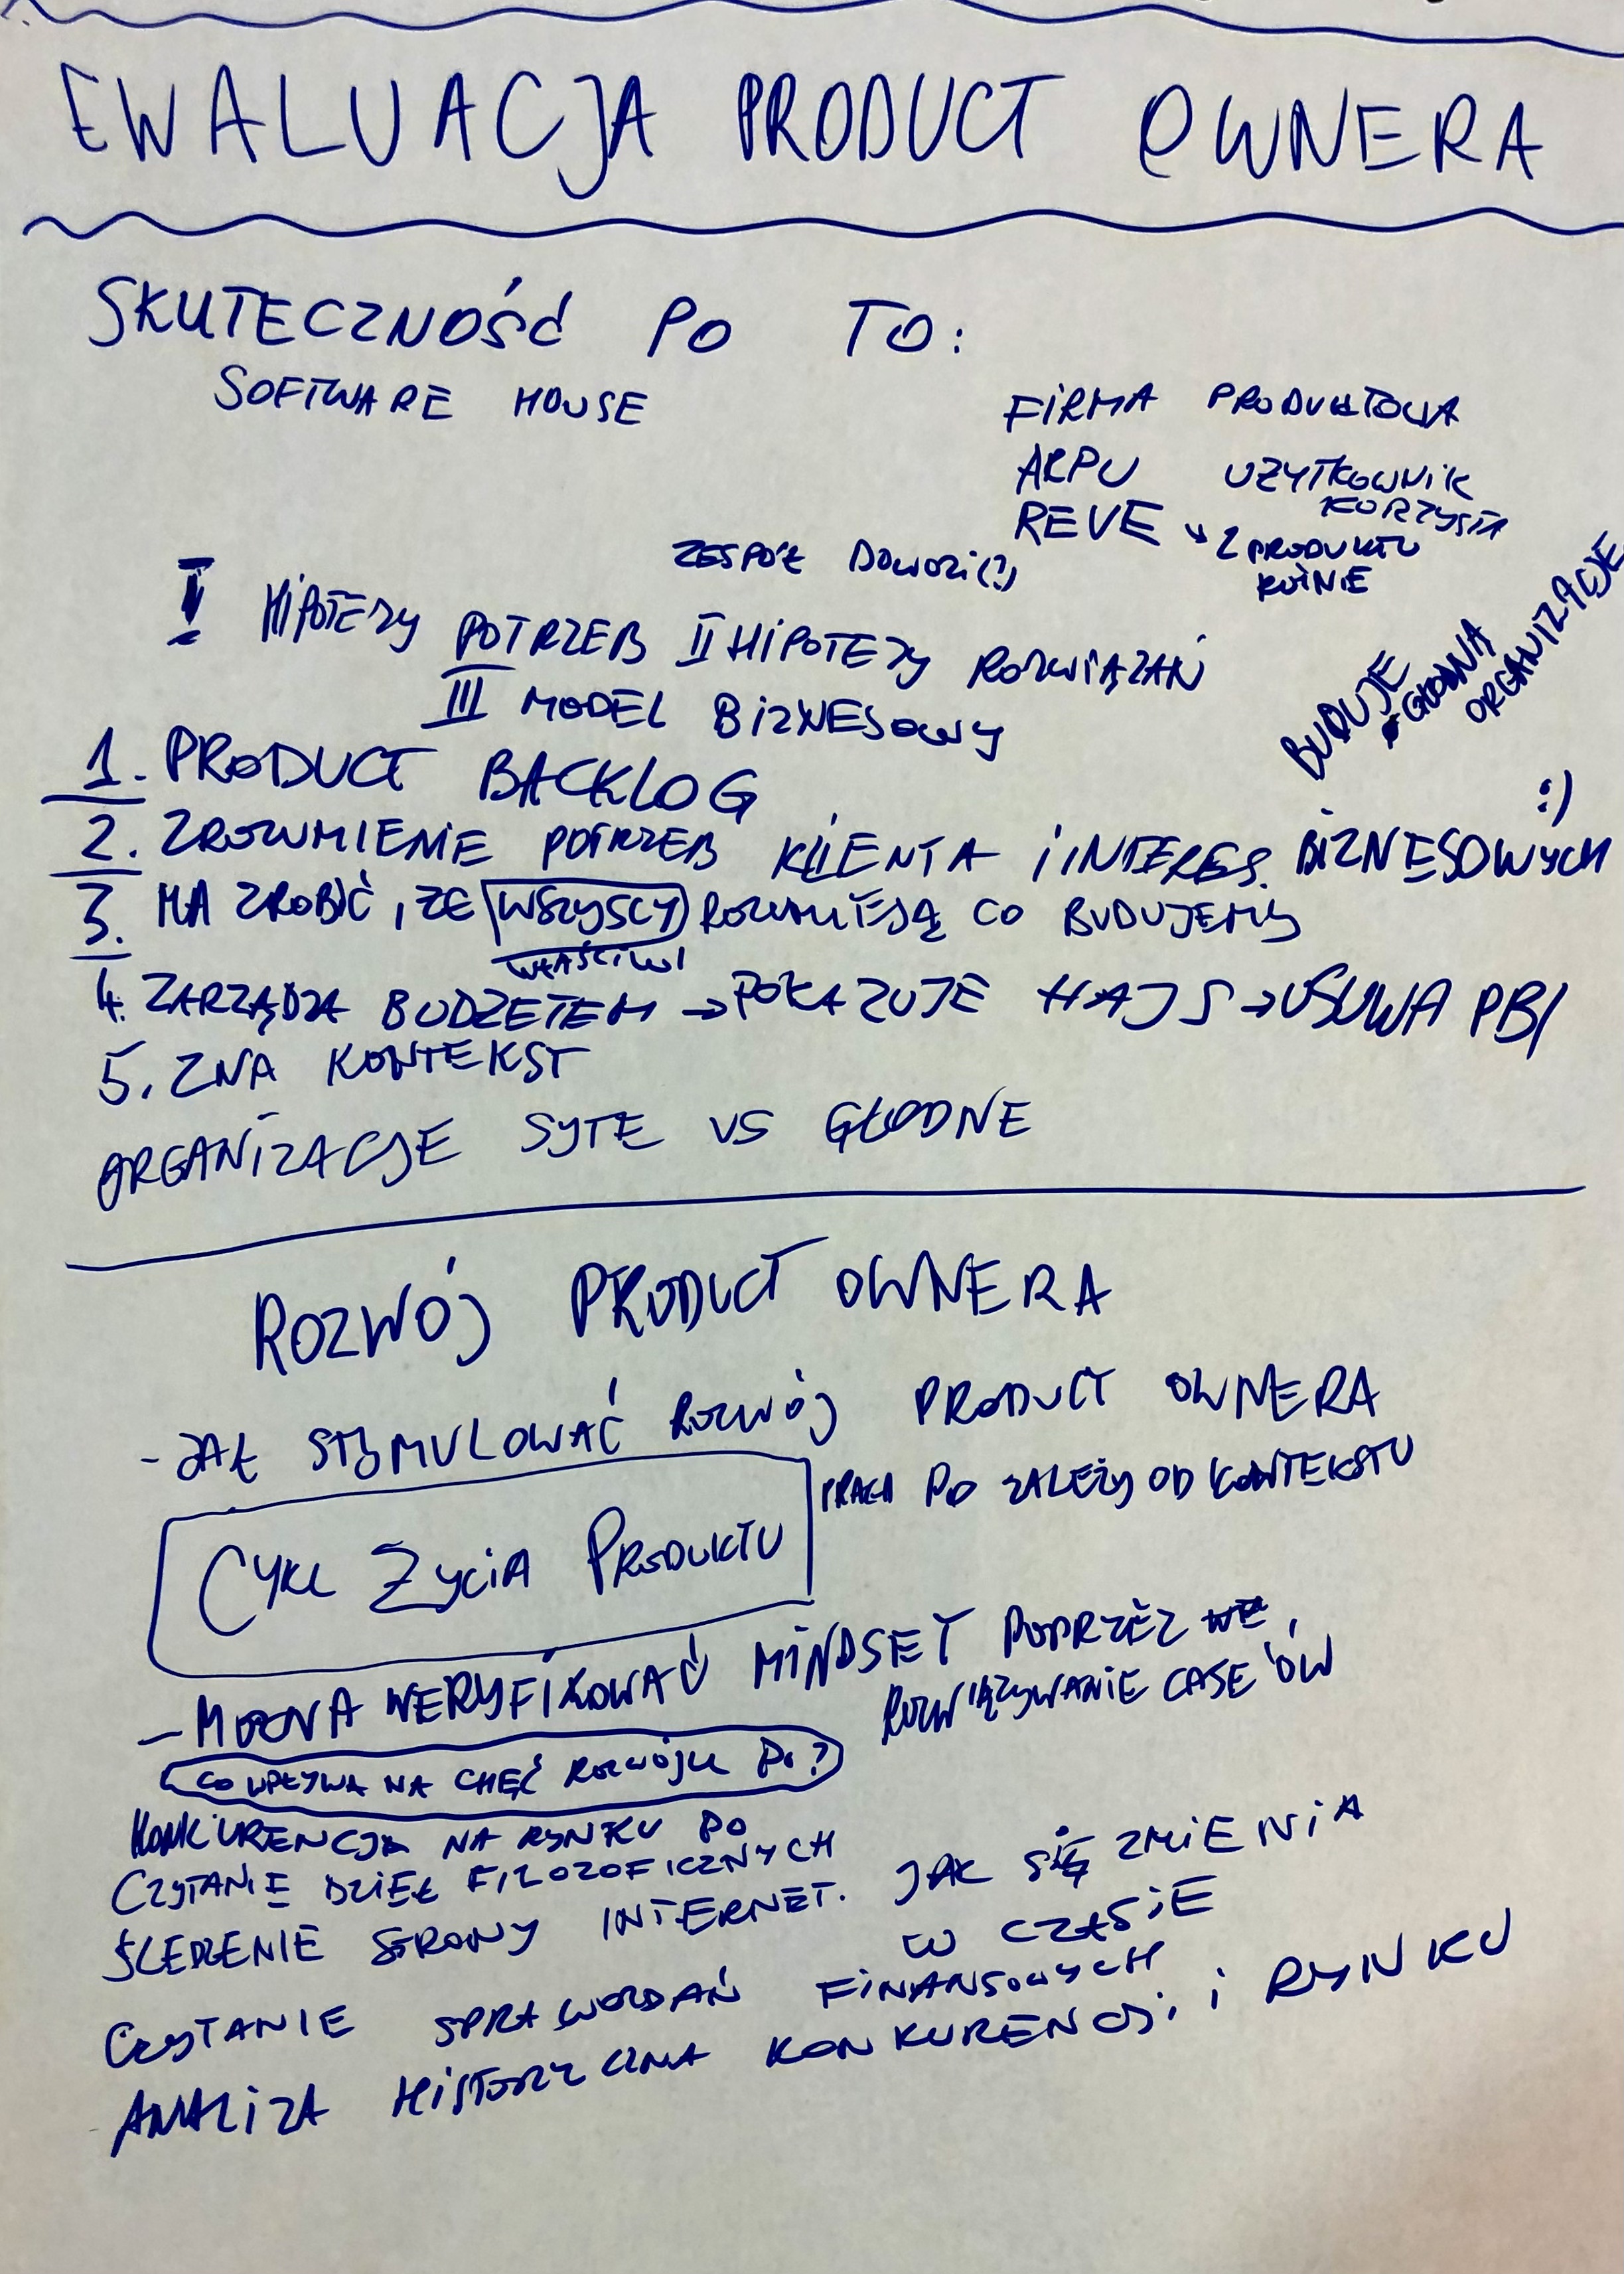 EWALUACJA PRODUCT OWNERA
SKUTECZNOŚĆ PO TO:
SOFTWARE HOUSE
FIRMA PRODUKTOWA
ARPU UZYTKOWNIK
KORZYSTA
REVE → Z PRODUKTU
ZESPÓŁ DOWOZI(?)
I HIPOTEZY POTRZEB II HIPOTEZY ROZWIĄZAŃ
III MODEL BIZNESOWY
BUDUJE
GŁODNA
ORGANIZACJE
:)
1. PRODUCT BACKLOG
2. ZROZUMIENIE POTRZEB KLIENTA I INTERES. BIZNESOWYCH
3. MA ZROBIĆ, ZE WSZYSCY ROZUMIEJĄ CO BUDUJEMY
WŁAŚCIWI
4. ZARZĄDZA BUDZETEM → POKAZUJE HAJS → USUWA PBI
5. ZNA KONTEKST
ORGANIZACJE SYTE VS GŁODNE
ROZWÓJ PRODUCT OWNERA
- JAK STYMULOWAĆ ROZWÓJ PRODUCT OWNERA
PRACA PO ZALEŻY OD KONTEKSTU
CYKL ŻYCIA PRODUKTU
- MOŻNA WERYFIKOWAĆ MINDSET POPRZEZ
ROZWIĄZYWANIE CASE'ÓW
CO WPŁYWA NA CHĘĆ ROZWOJU PO?
KONKURENCJA NA RYNKU PO
CZYTANIE DZIEŁ FILOZOFICZNYCH
ŚLEDZENIE STRONY INTERNET. JAK SIĘ ZMIENIA
W CZASIE
CZYTANIE SPRAWOZDAŃ FINANSOWYCH
ANALIZA HISTORYCZNA KONKURENCJI i RYNKU